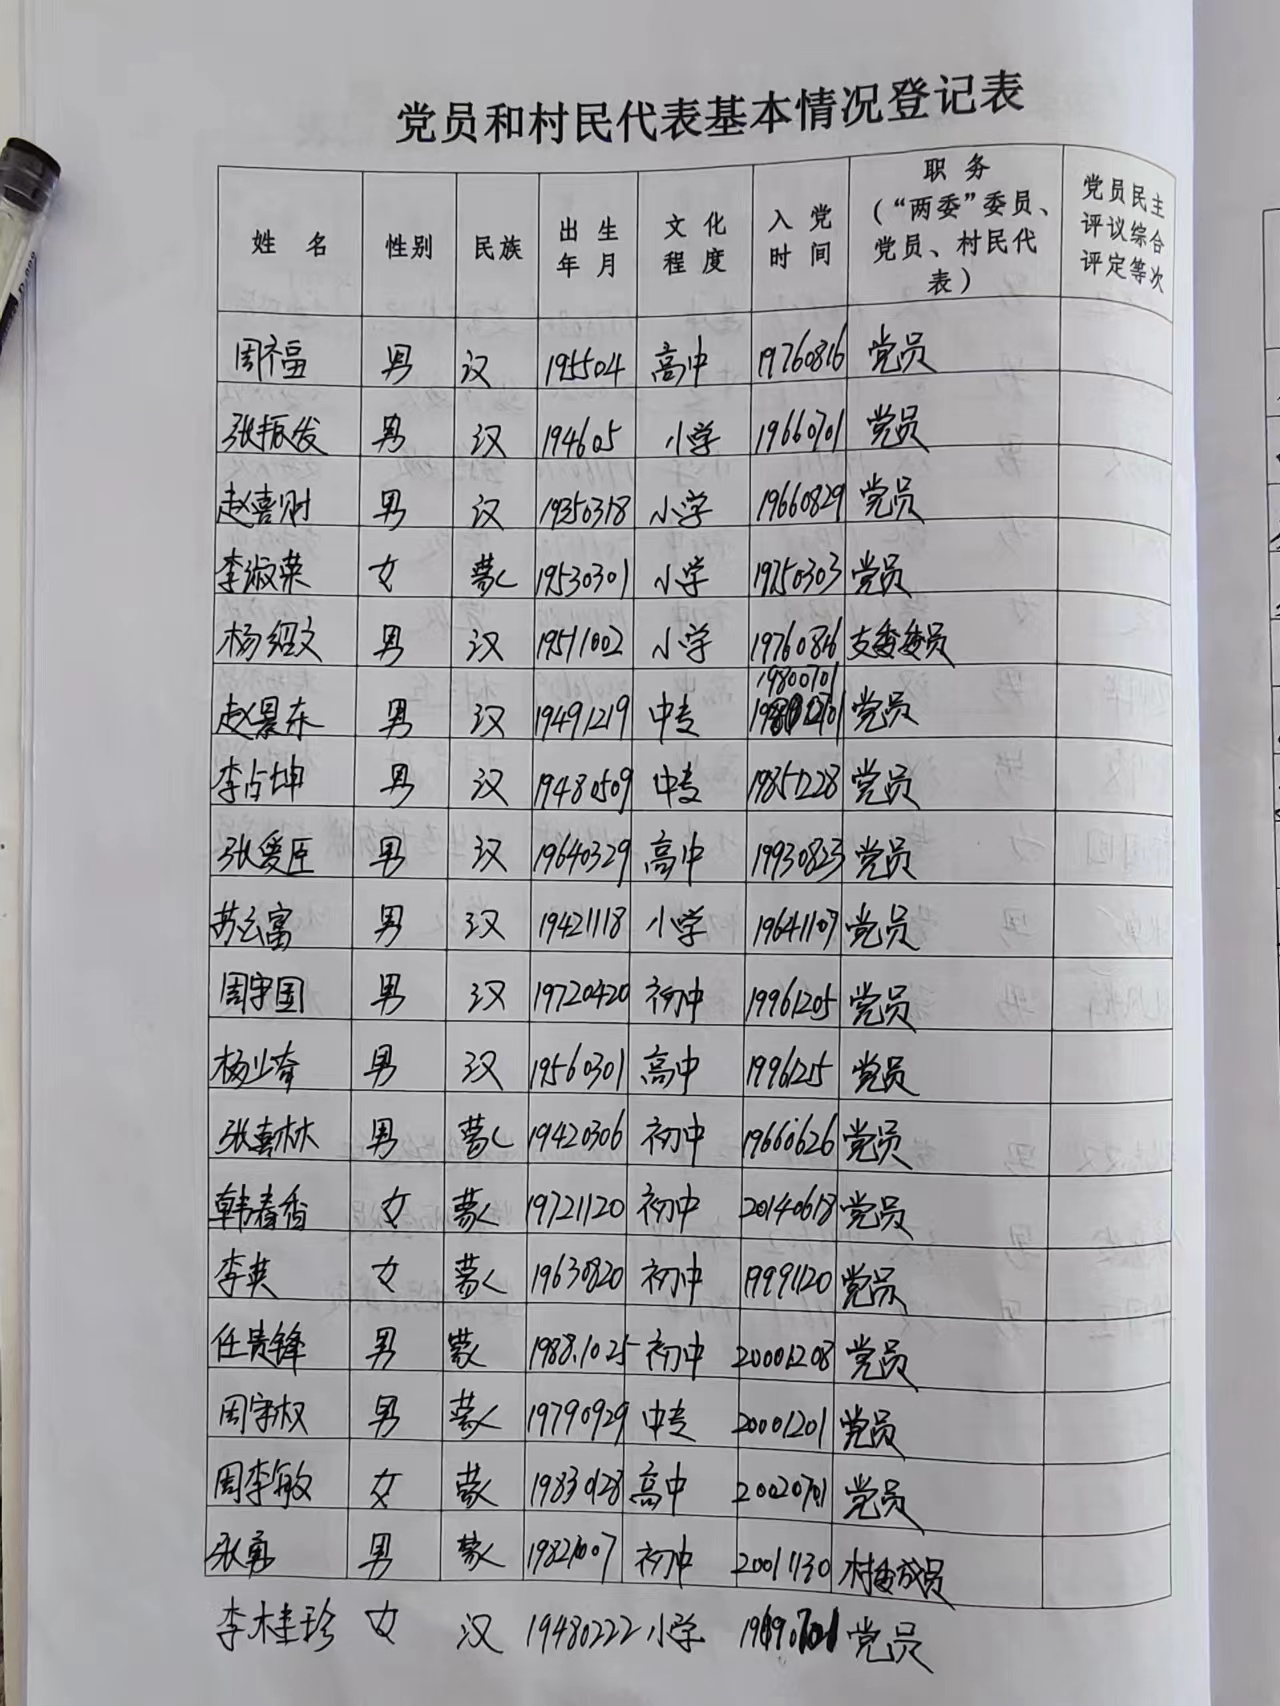 党员和村民代表基本情况登记表
姓名 性别 民族 出生年月 文化程度 入党时间 职务（“两委”委员、党员、村民代表） 党员民主评议综合评定等次
周福 男 汉 195504 高中 19760816 党员
张振发 男 汉 194605 小学 19660701 党员
赵喜财 男 汉 19350318 小学 19660829 党员
李淑荣 女 蒙 19530301 小学 19750303 党员
杨绍文 男 汉 19511002 小学 19760816 支委委员
19800701
赵景东 男 汉 19491219 中专 党员
李占坤 男 汉 19480509 中专 19851228 党员
张爱臣 男 汉 19640329 高中 19930823 党员
苏云富 男 汉 19421118 小学 19641109 党员
周守国 男 汉 19720420 初中 19961205 党员
杨少奇 男 汉 19560301 高中 1996125 党员
张喜林 男 蒙 19420306 初中 19660626 党员
韩春香 女 蒙 19721120 初中 20140618 党员
李英 女 蒙 19630820 初中 19991120 党员
任贵锋 男 蒙 1988.1025 初中 20001208 党员
周守权 男 蒙 19790929 中专 20001201 党员
周李敏 女 蒙 1983 高中 20020701 党员
张勇 男 蒙 19821007 初中 20011130 村委成员
李桂珍 女 汉 19480222 小学 党员